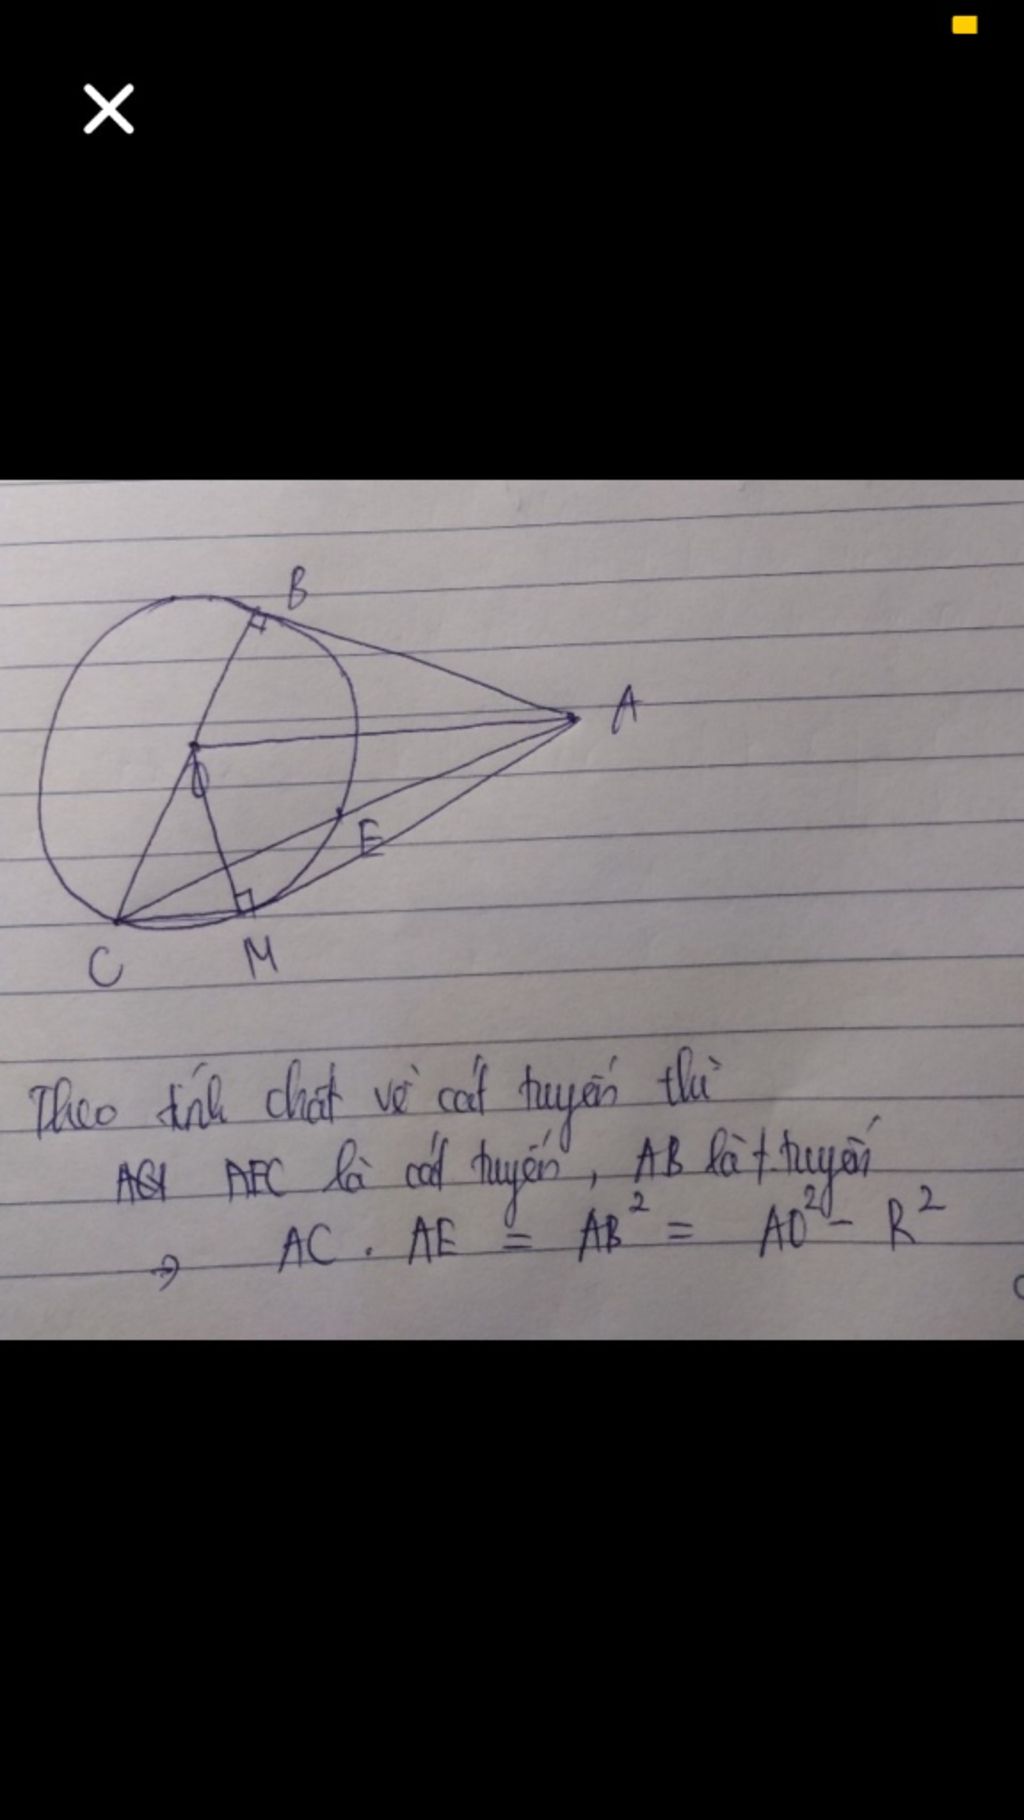 B
A
O
E
C
M
Theo tính chất về cát tuyến thì
AEC là cát tuyến, AB là t.tuyến
→ AC . AE = AB² = AO² - R²